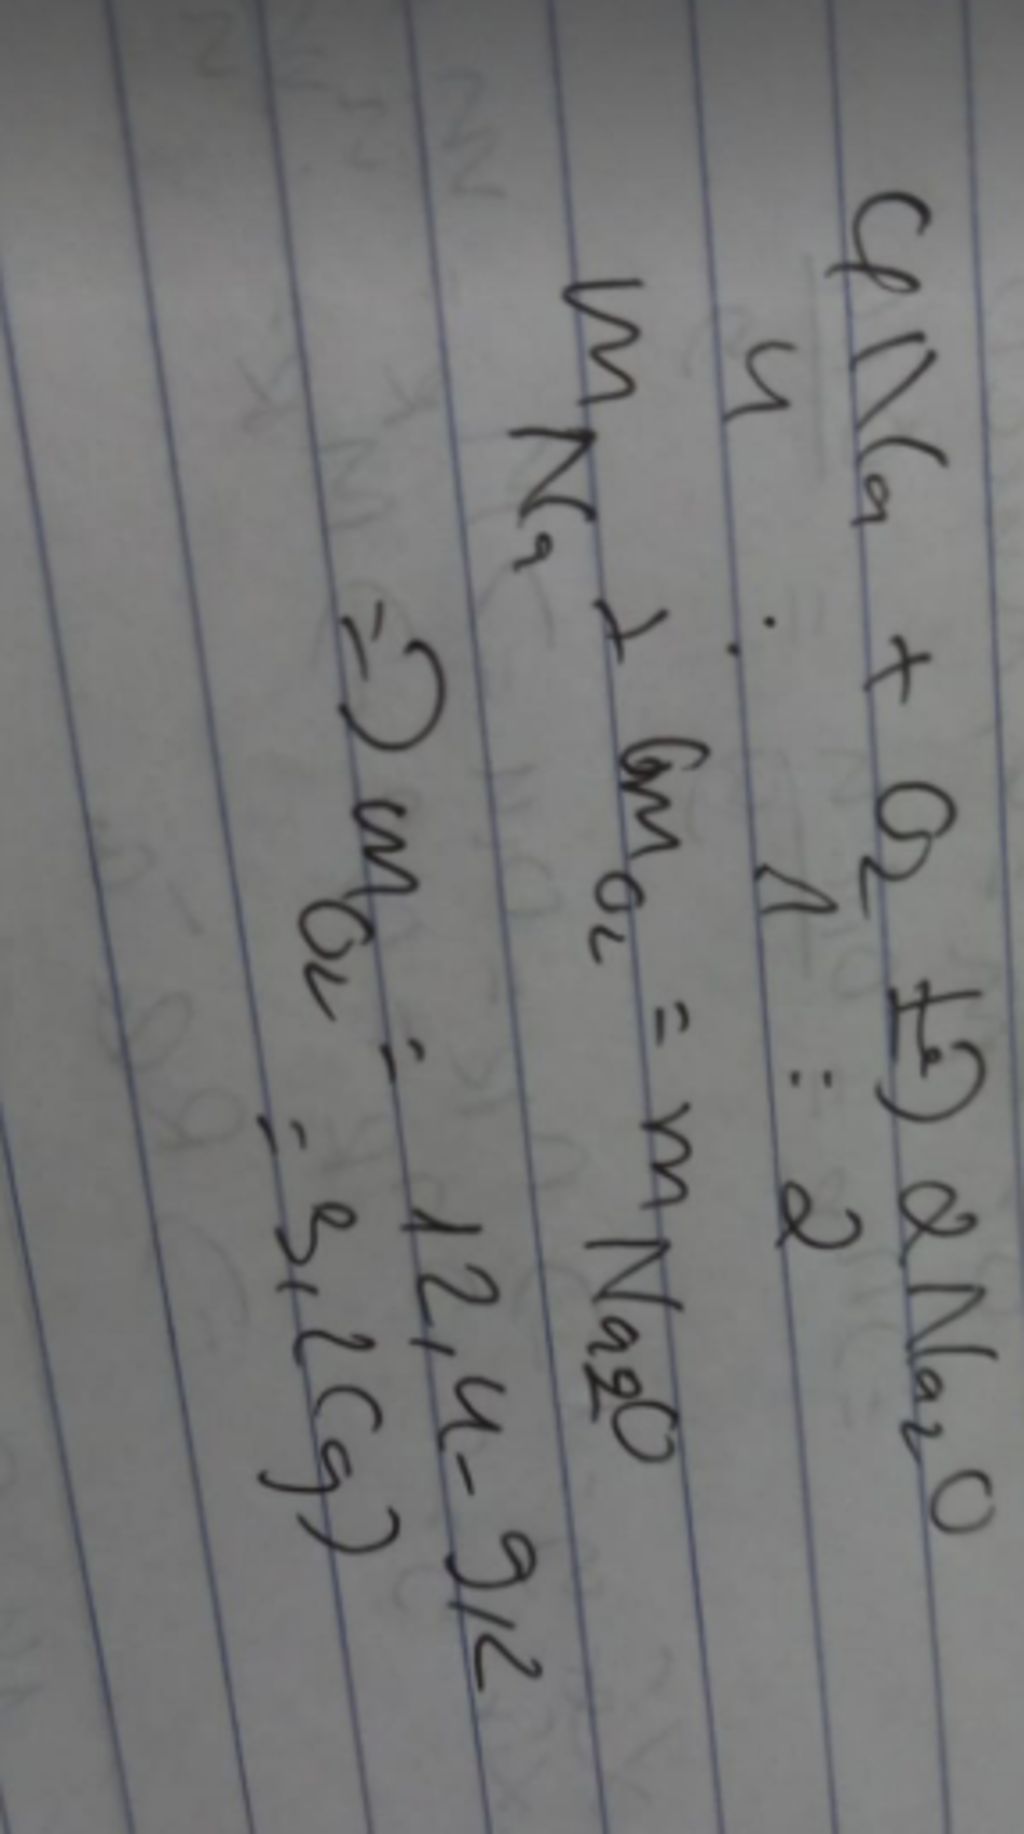 4Na + O₂ t°→ 2Na₂O
4 : 1 : 2
m Na + m O₂ = m Na₂O
=> m O₂ = 12,4 - 9,2
= 3,2 (g)